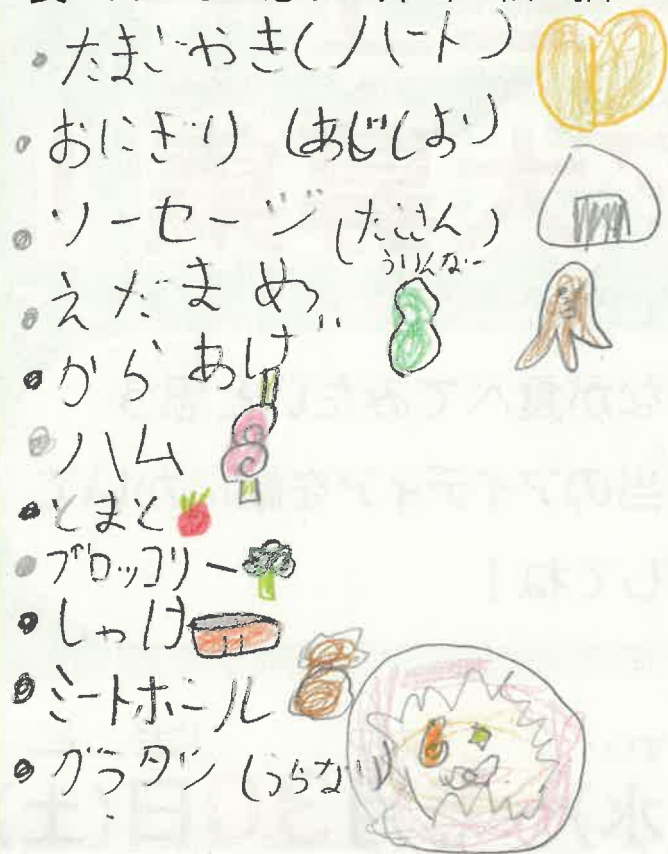 ・たまごやき(ハート)
・おにぎり(あじしお)
・ソーセージ(たこさん
ういんなー)
・えだまめ
・からあげ
・ハム
・とまと
・ブロッコリー
・しゃけ
・ミートボール
・グラタン